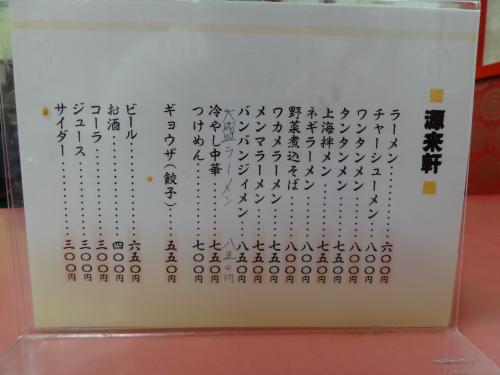 源来軒
ラーメン……………六〇〇円
チャーシューメン………八〇〇円
ワンタンメン…………八〇〇円
タンタンメン…………七五〇円
上海拌メン…………七五〇円
ネギラーメン…………八〇〇円
野菜煮込そば…………八〇〇円
ワカメラーメン………七五〇円
メンマラーメン………七五〇円
バンバンジィメン……八五〇円
大盛ラーメン 八五〇円
冷やし中華…………七五〇円
つけめん……………七〇〇円
ギョウザ(餃子)……五五〇円
ビール……………六五〇円
お酒………………四〇〇円
コーラ……………三〇〇円
ジュース…………三〇〇円
サイダー…………三〇〇円